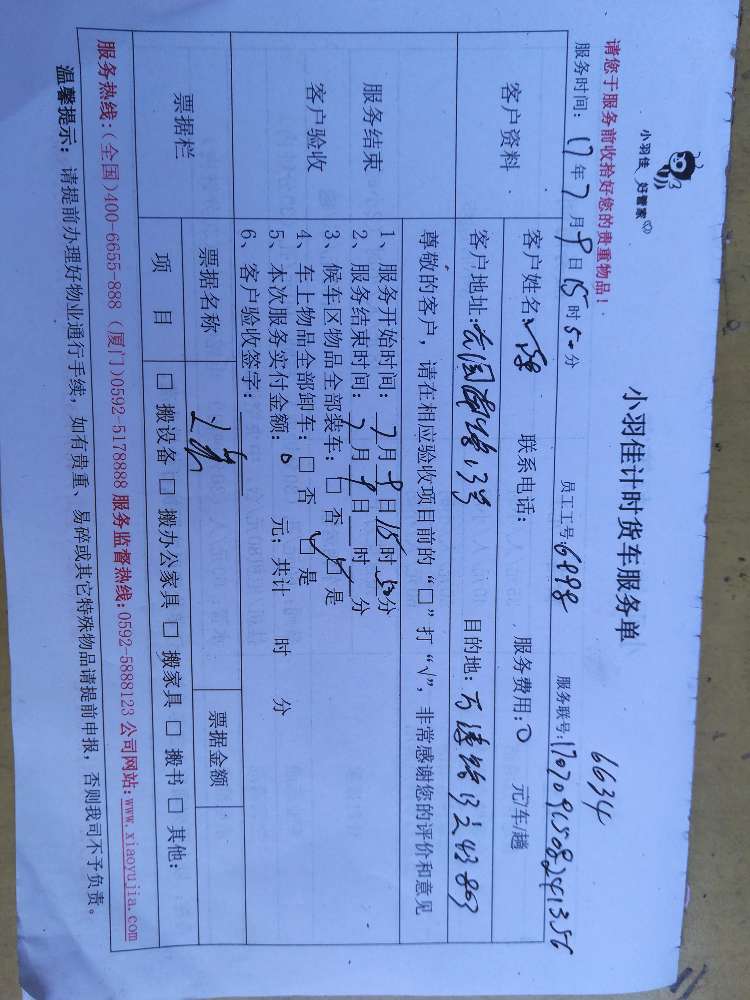 小羽佳 好管家
小羽佳计时货车服务单
6634
请您于服务前收拾好您的贵重物品！
服务时间：17年7月9日15时50分 员工工号：6898 服务联号：1707091508241356
客户资料
客户姓名： 联系电话： 服务费用：0 元/车/趟
客户地址： 13号 目的地：
服务结束
客户验收
尊敬的客户，请在相应验收项目前的“□”打“√”，非常感谢您的评价和意见
1、服务开始时间：7月9日15时50分
2、服务结束时间：7月9日 时 分
3、候车区物品全部装车：□ 否 ☑ 是
4、车上物品全部卸车：□ 否 ☑ 是
5、本次服务实付金额：0 元；共计 时 分
6、客户验收签字：
票据栏
票据名称 票据金额
项 目 □ 搬设备 □ 搬办公家具 □ 搬家具 □ 搬书 □ 其他：
服务热线：(全国)400-6655-888 (厦门)0592-5178888 服务监督热线：0592-5888123 公司网站：www.xiaoyujia.com
温馨提示：请提前办理好物业通行手续，如有贵重、易碎或其它特殊物品请提前申报，否则我司不予负责。